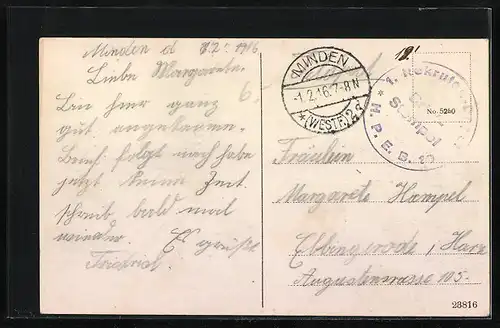 Minden d 1.2.1916
Liebe Margarete.
Bin hier ganz
gut angekommen.
Brief folgt nach habe
jetzt keine Zeit
schreib bald mal
wieder. Es grüßt
Friedrich.
6.-
MINDEN
-1.2.16.7-8N
*(WESTF)2d
1. Rekruten-
Stempel
H. P. E. B. 10
No. 5240
Fräulein
Margarete Hampel
Elbingerode, Harz
Augustenstrasse 105-
23816